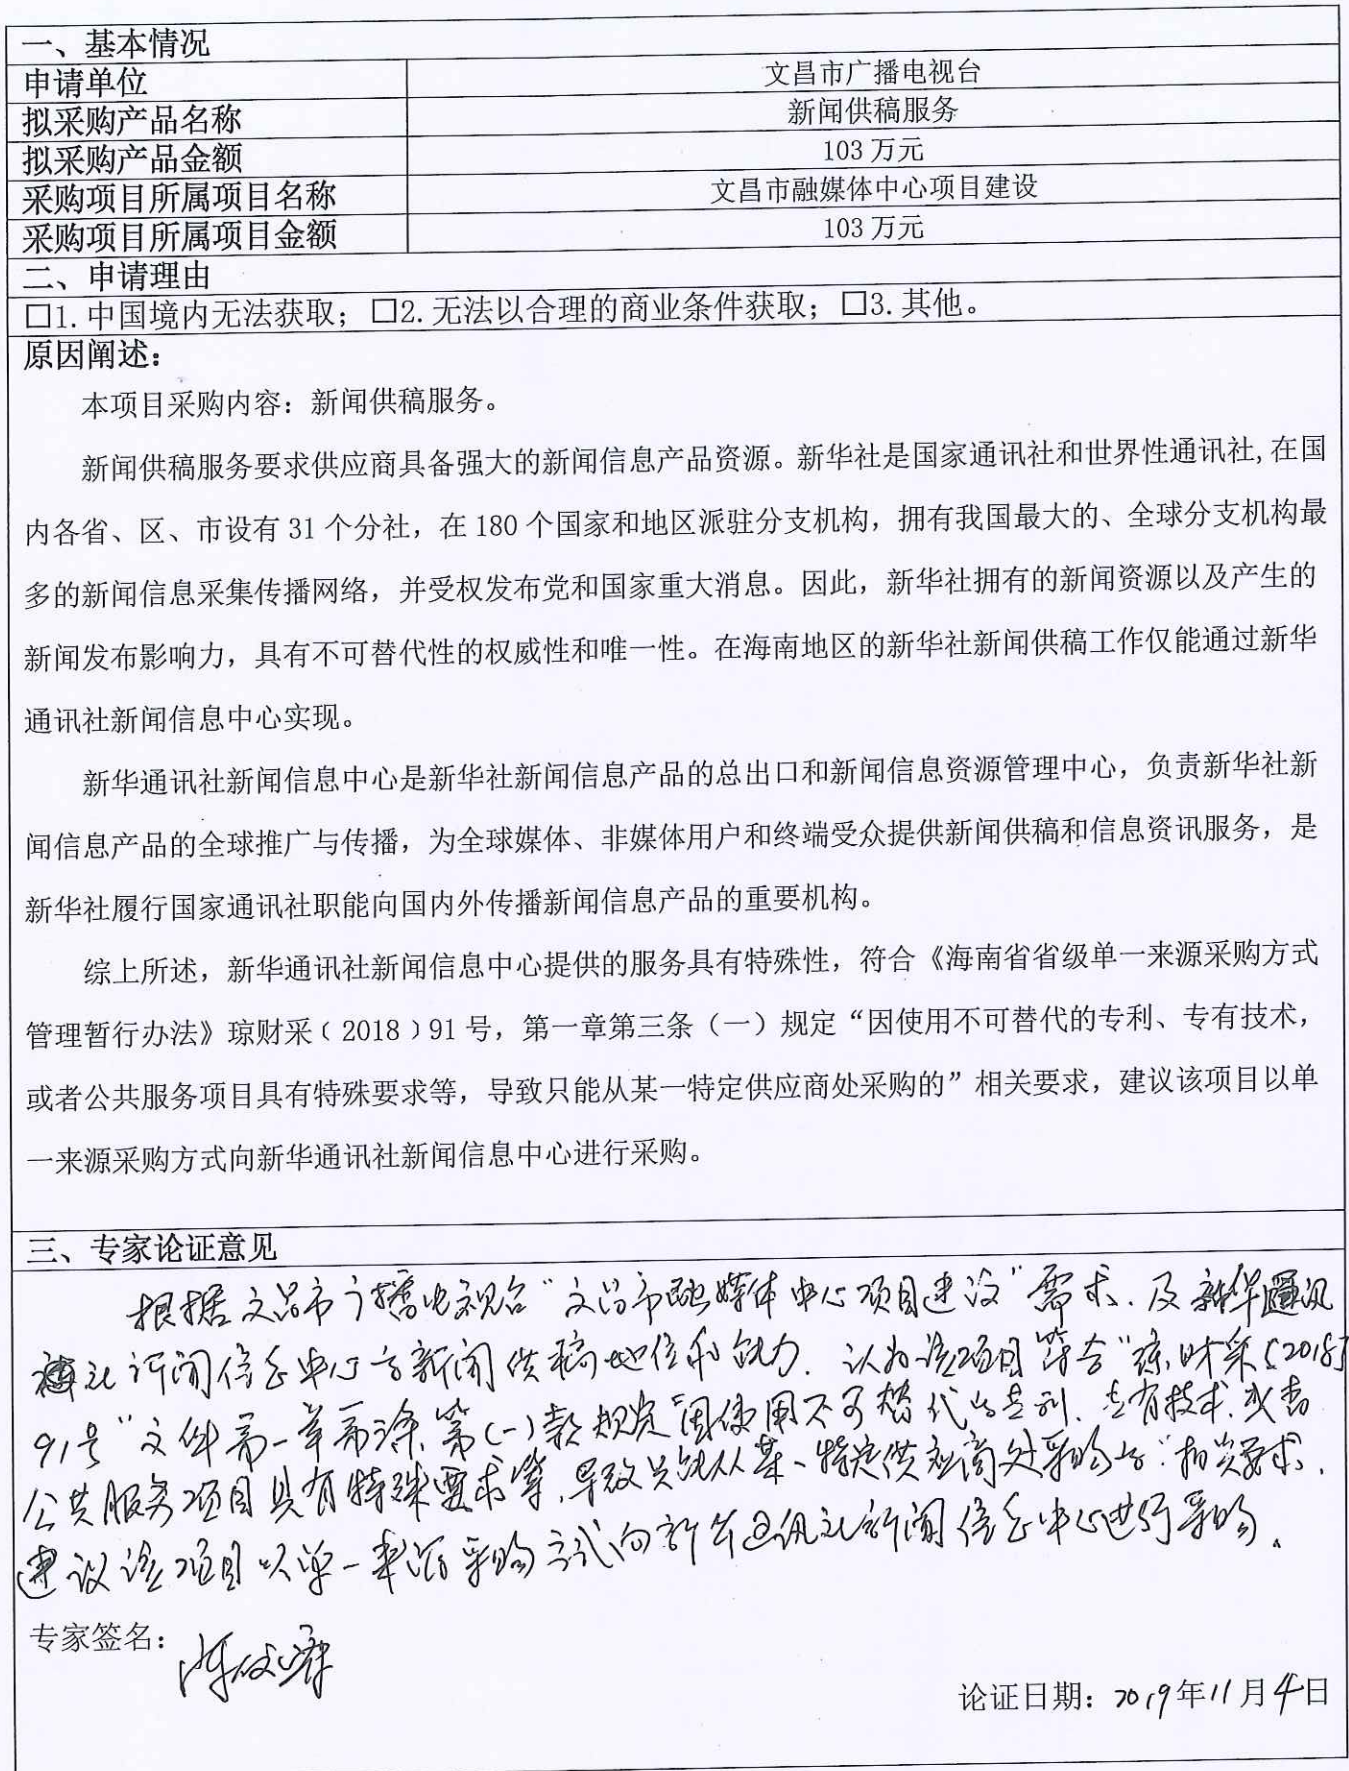 一、基本情况
申请单位 文昌市广播电视台
拟采购产品名称 新闻供稿服务
拟采购产品金额 103 万元
采购项目所属项目名称 文昌市融媒体中心项目建设
采购项目所属项目金额 103 万元
二、申请理由
□1.中国境内无法获取；□2.无法以合理的商业条件获取；□3.其他。
原因阐述：
本项目采购内容：新闻供稿服务。
新闻供稿服务要求供应商具备强大的新闻信息产品资源。新华社是国家通讯社和世界性通讯社,在国
内各省、区、市设有 31 个分社，在 180 个国家和地区派驻分支机构，拥有我国最大的、全球分支机构最
多的新闻信息采集传播网络，并受权发布党和国家重大消息。因此，新华社拥有的新闻资源以及产生的
新闻发布影响力，具有不可替代性的权威性和唯一性。在海南地区的新华社新闻供稿工作仅能通过新华
通讯社新闻信息中心实现。
新华通讯社新闻信息中心是新华社新闻信息产品的总出口和新闻信息资源管理中心，负责新华社新
闻信息产品的全球推广与传播，为全球媒体、非媒体用户和终端受众提供新闻供稿和信息资讯服务，是
新华社履行国家通讯社职能向国内外传播新闻信息产品的重要机构。
综上所述，新华通讯社新闻信息中心提供的服务具有特殊性，符合《海南省省级单一来源采购方式
管理暂行办法》琼财采﹝2018﹞91 号，第一章第三条（一）规定“因使用不可替代的专利、专有技术，
或者公共服务项目具有特殊要求等，导致只能从某一特定供应商处采购的”相关要求，建议该项目以单
一来源采购方式向新华通讯社新闻信息中心进行采购。
三、专家论证意见
根据文昌市广播电视台“文昌市融媒体中心项目建设”需求，及新华通讯
社新闻信息中心的新闻供稿地位和能力，认为该项目符合“琼财采〔2018〕
91号”文件第一章第三条、第(一)款规定“因使用不可替代的专利、专有技术，或者
公共服务项目具有特殊要求等，导致只能从某一特定供应商处采购的”相关要求，
建议该项目以单一来源采购方式向新华通讯社新闻信息中心进行采购。
专家签名：
论证日期：2019年11月4日